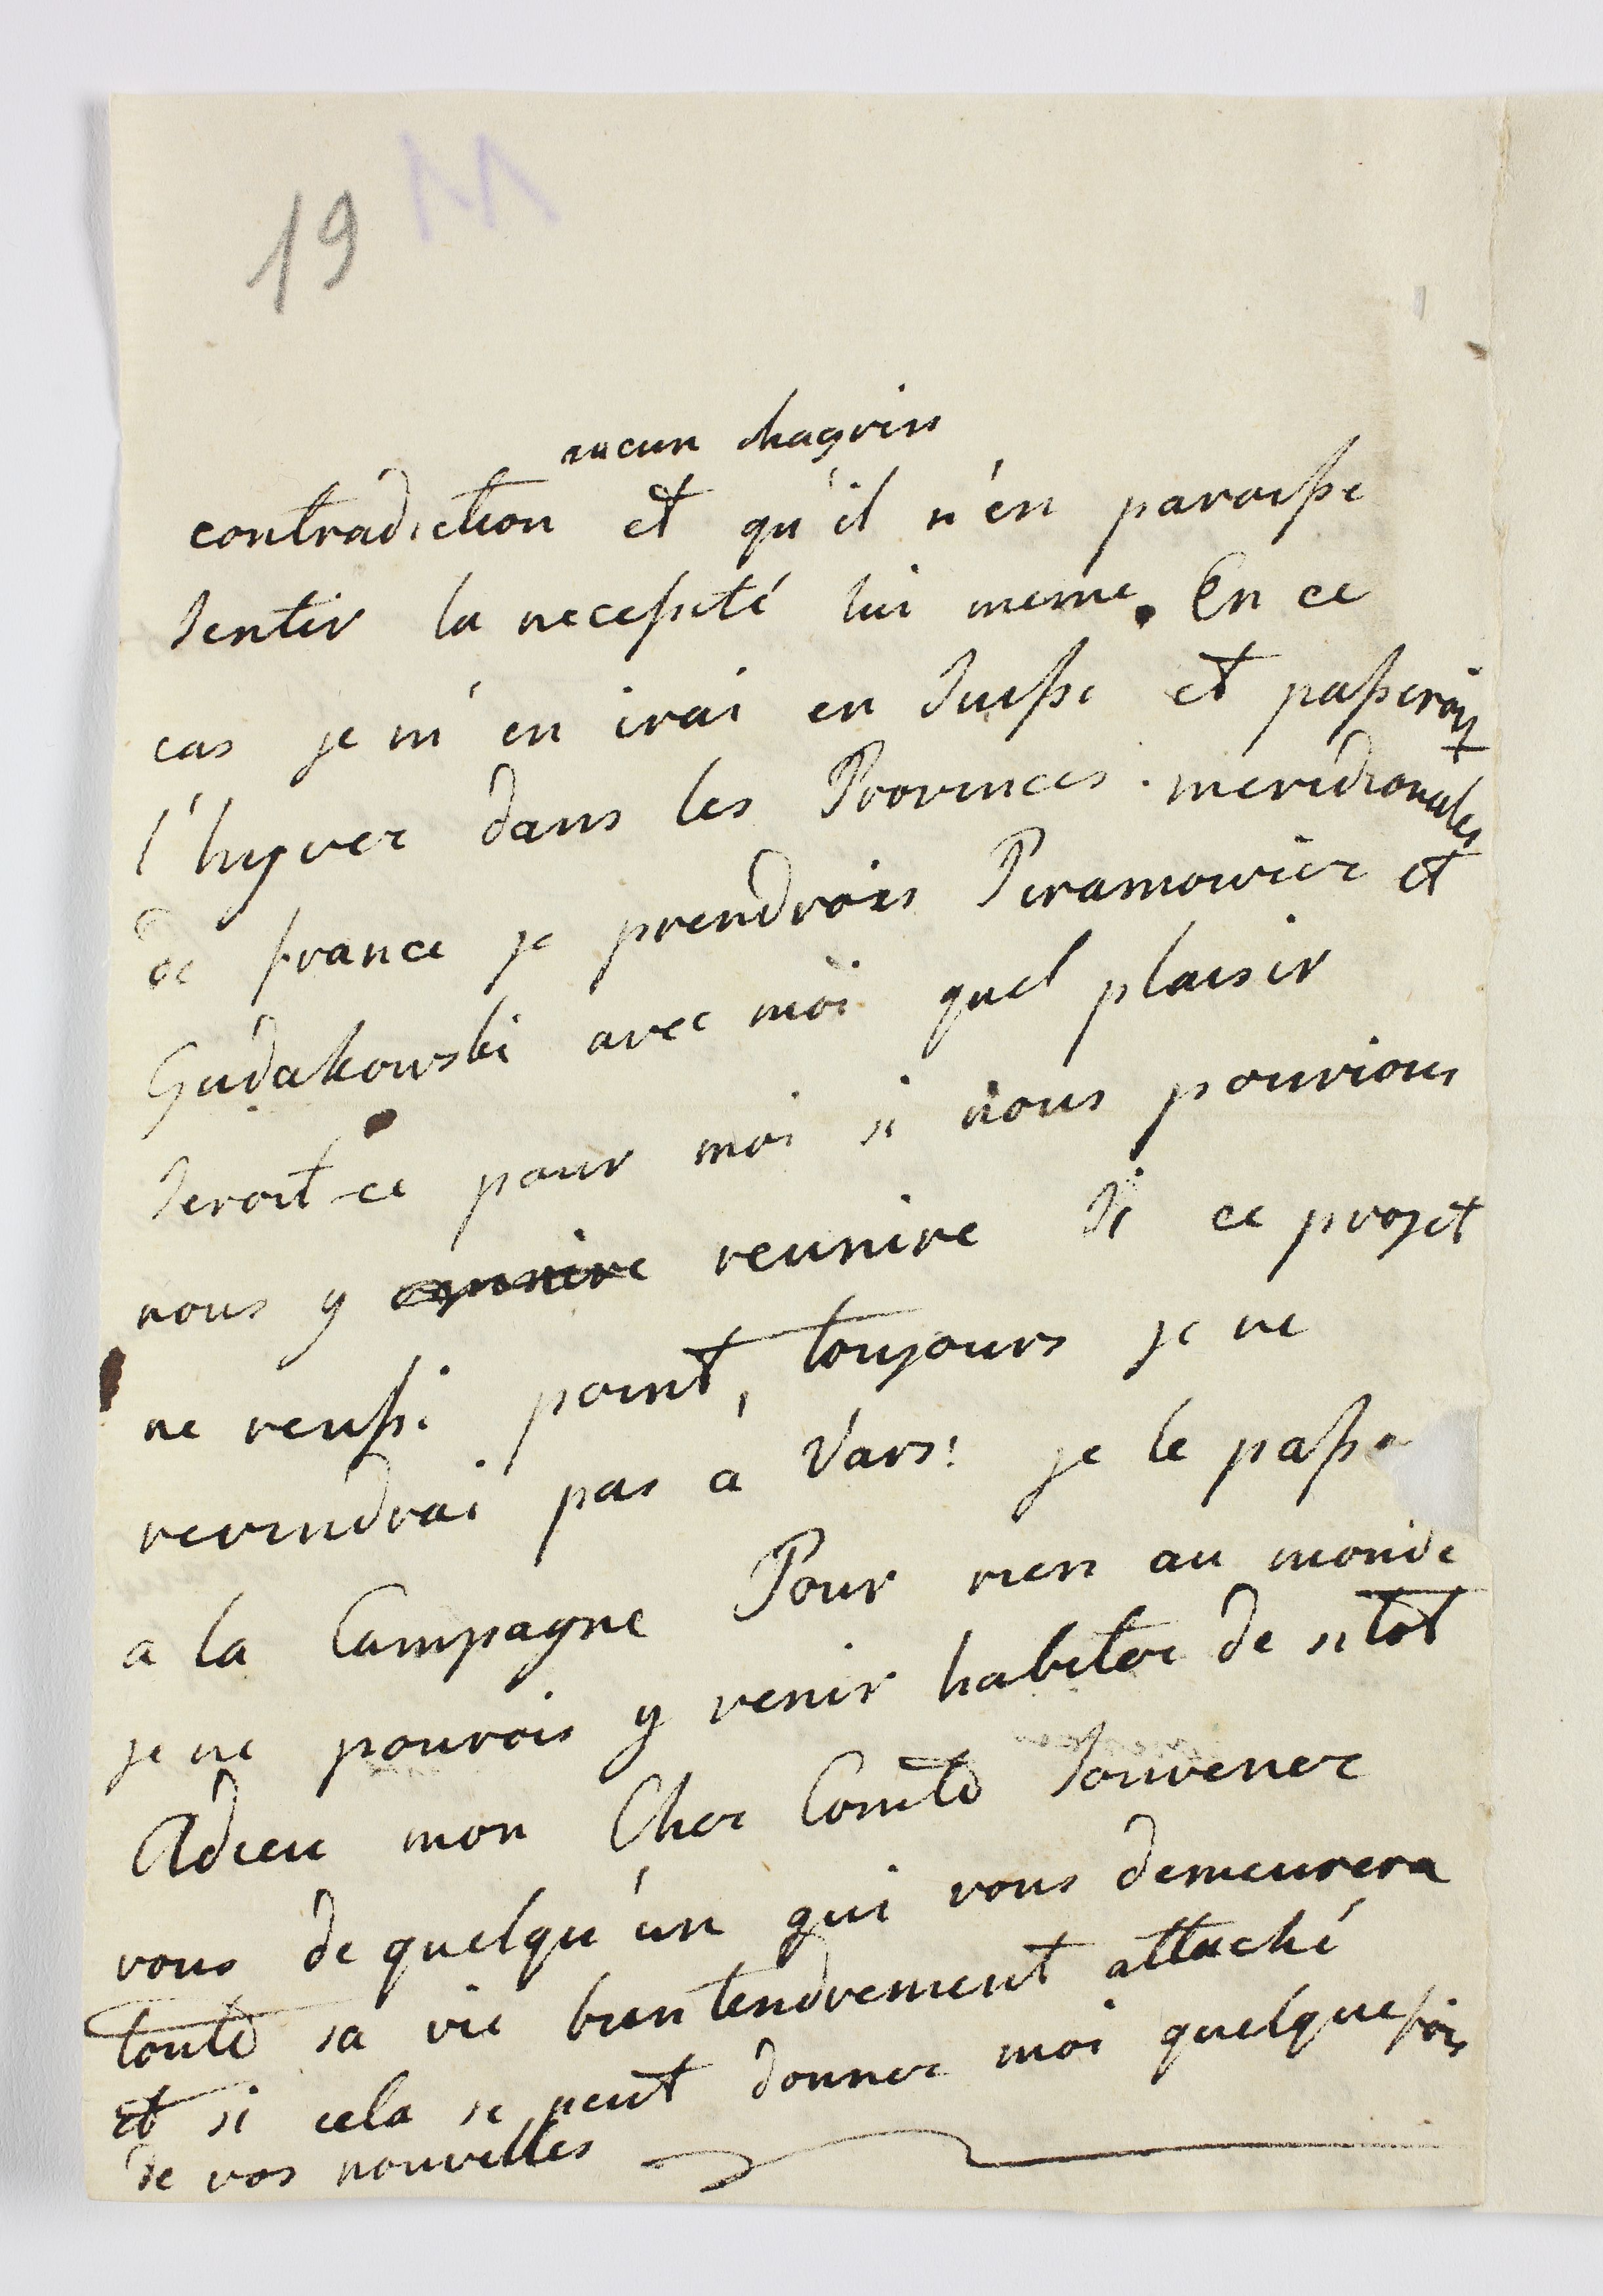 19 M
aucun chagrin
contradiction et qu'il n'en paroisse
sentir la necessité lui meme. En ce
cas je m'en irai en Suisse et passerois
l'hyver dans les Provinces meridionales
de france je prendrois Piramowicz et
Gudakowski avec moi quel plaisir
seroit-ce pour moi si nous pourions
nous y reunire Si ce projet
ne reussi point, toujours je ne
reviendrai pas à Vars: je le passe
a la Campagne Pour rien au monde
je ne pourois y venir habiter de sitot
Adieu mon Cher Comte Souvenez
vous de quelqu'un qui vous demeurera
toute sa vie bien tendrement attaché
et si cela se peut donnez moi quelquefois
de vos nouvelles